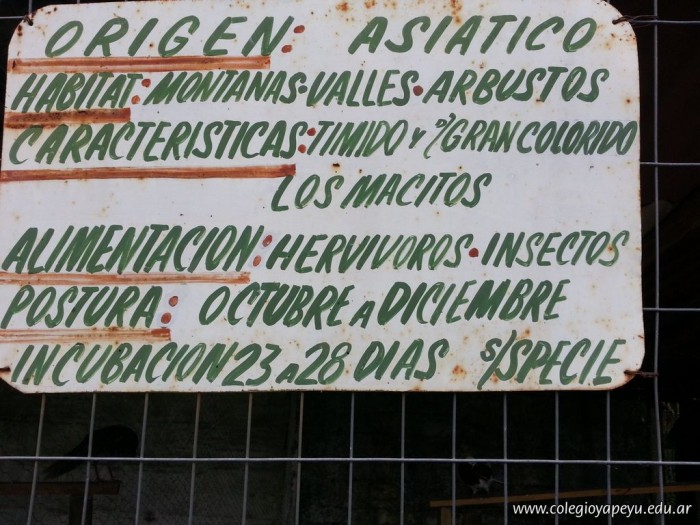 ORIGEN: ASIATICO
HABITAT: MONTANAS•VALLES•ARBUSTOS
CARACTERISTICAS•TIMIDO Y D/GRAN COLORIDO
LOS MACITOS
ALIMENTACION: HERVIVOROS•INSECTOS
POSTURA: OCTUBRE A DICIEMBRE
INCUBACION 23 A 28 DIAS S/SPECIE
www.colegioyapeyu.edu.ar